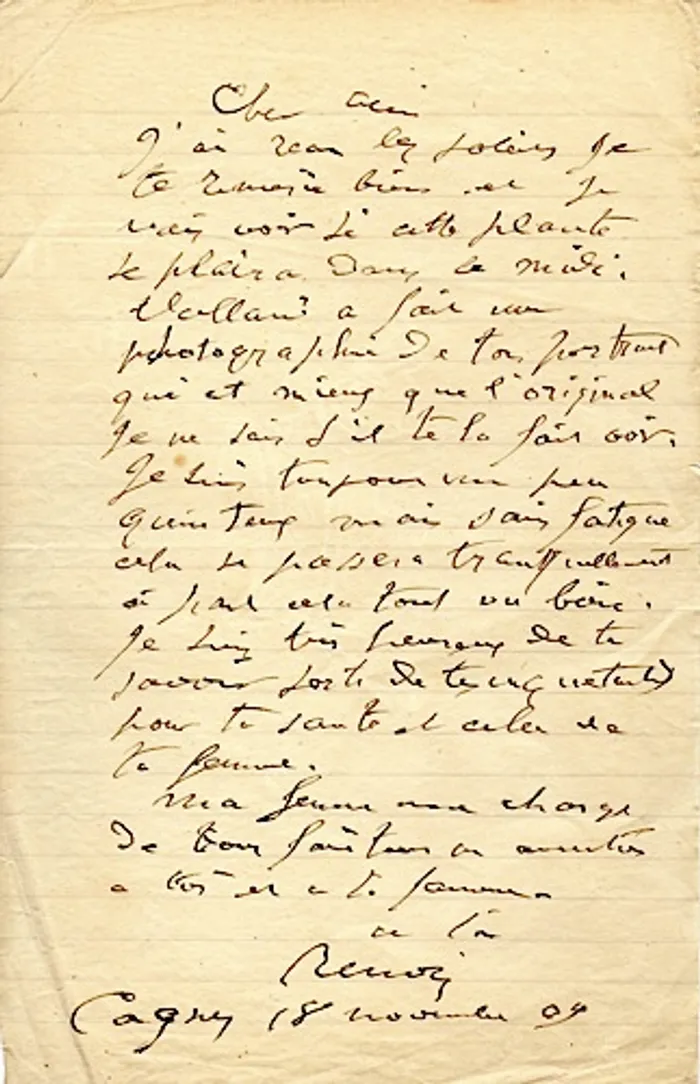 Cher ami
J'ai reçu les soleils Je
te remercie bien et je
vais voir si cette plante
se plaira dans le midi.
Vollard a fait une
photographie de ton portrait
qui est mieux que l'original
Je ne sais s'il te la fait voir.
Je suis toujours un peu
quinteux mais sans fatigue
cela se passera tranquillement
à part cela tout va bien.
Je suis très heureux de te
savoir sorti de tes inquietudes
pour ta santé et celle de
ta femme.
ma femme me charge
de vous faire ses amitiés
a toi et a ta femme.
a toi
Renoir
Cagnes 18 novembre 09